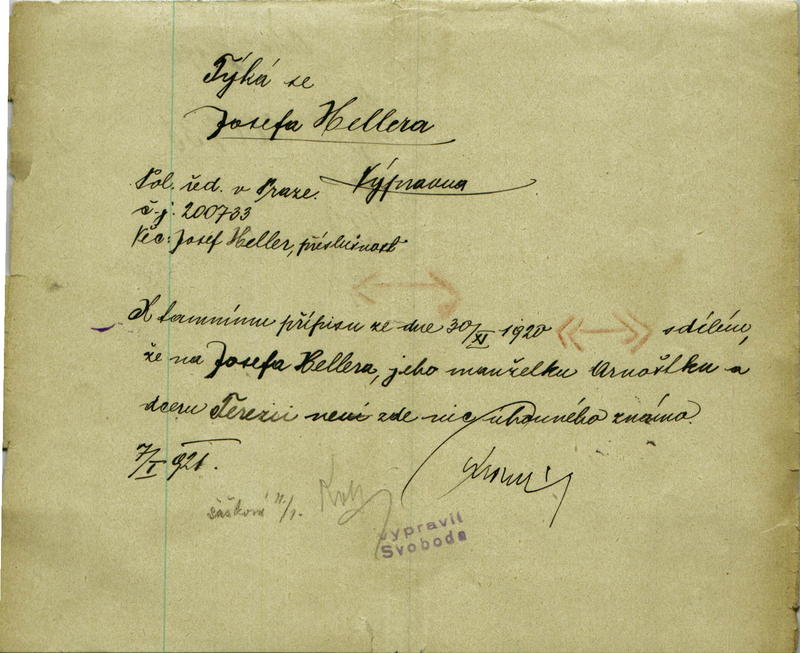 Týká se
Josefa Hellera
Pol. řed. v Praze. Výpravna
č.j. 200733
Věc: Josef Heller, příslušnost
K tamnímu přípisu ze dne 30/XI 1920 sdělém,
že na Josefa Hellera, jeho manželku Arnoštku a
dceru Terezii není zde nic úhonného známo.
7/I 921.
Sášková 11/1.
vypravil
Svoboda